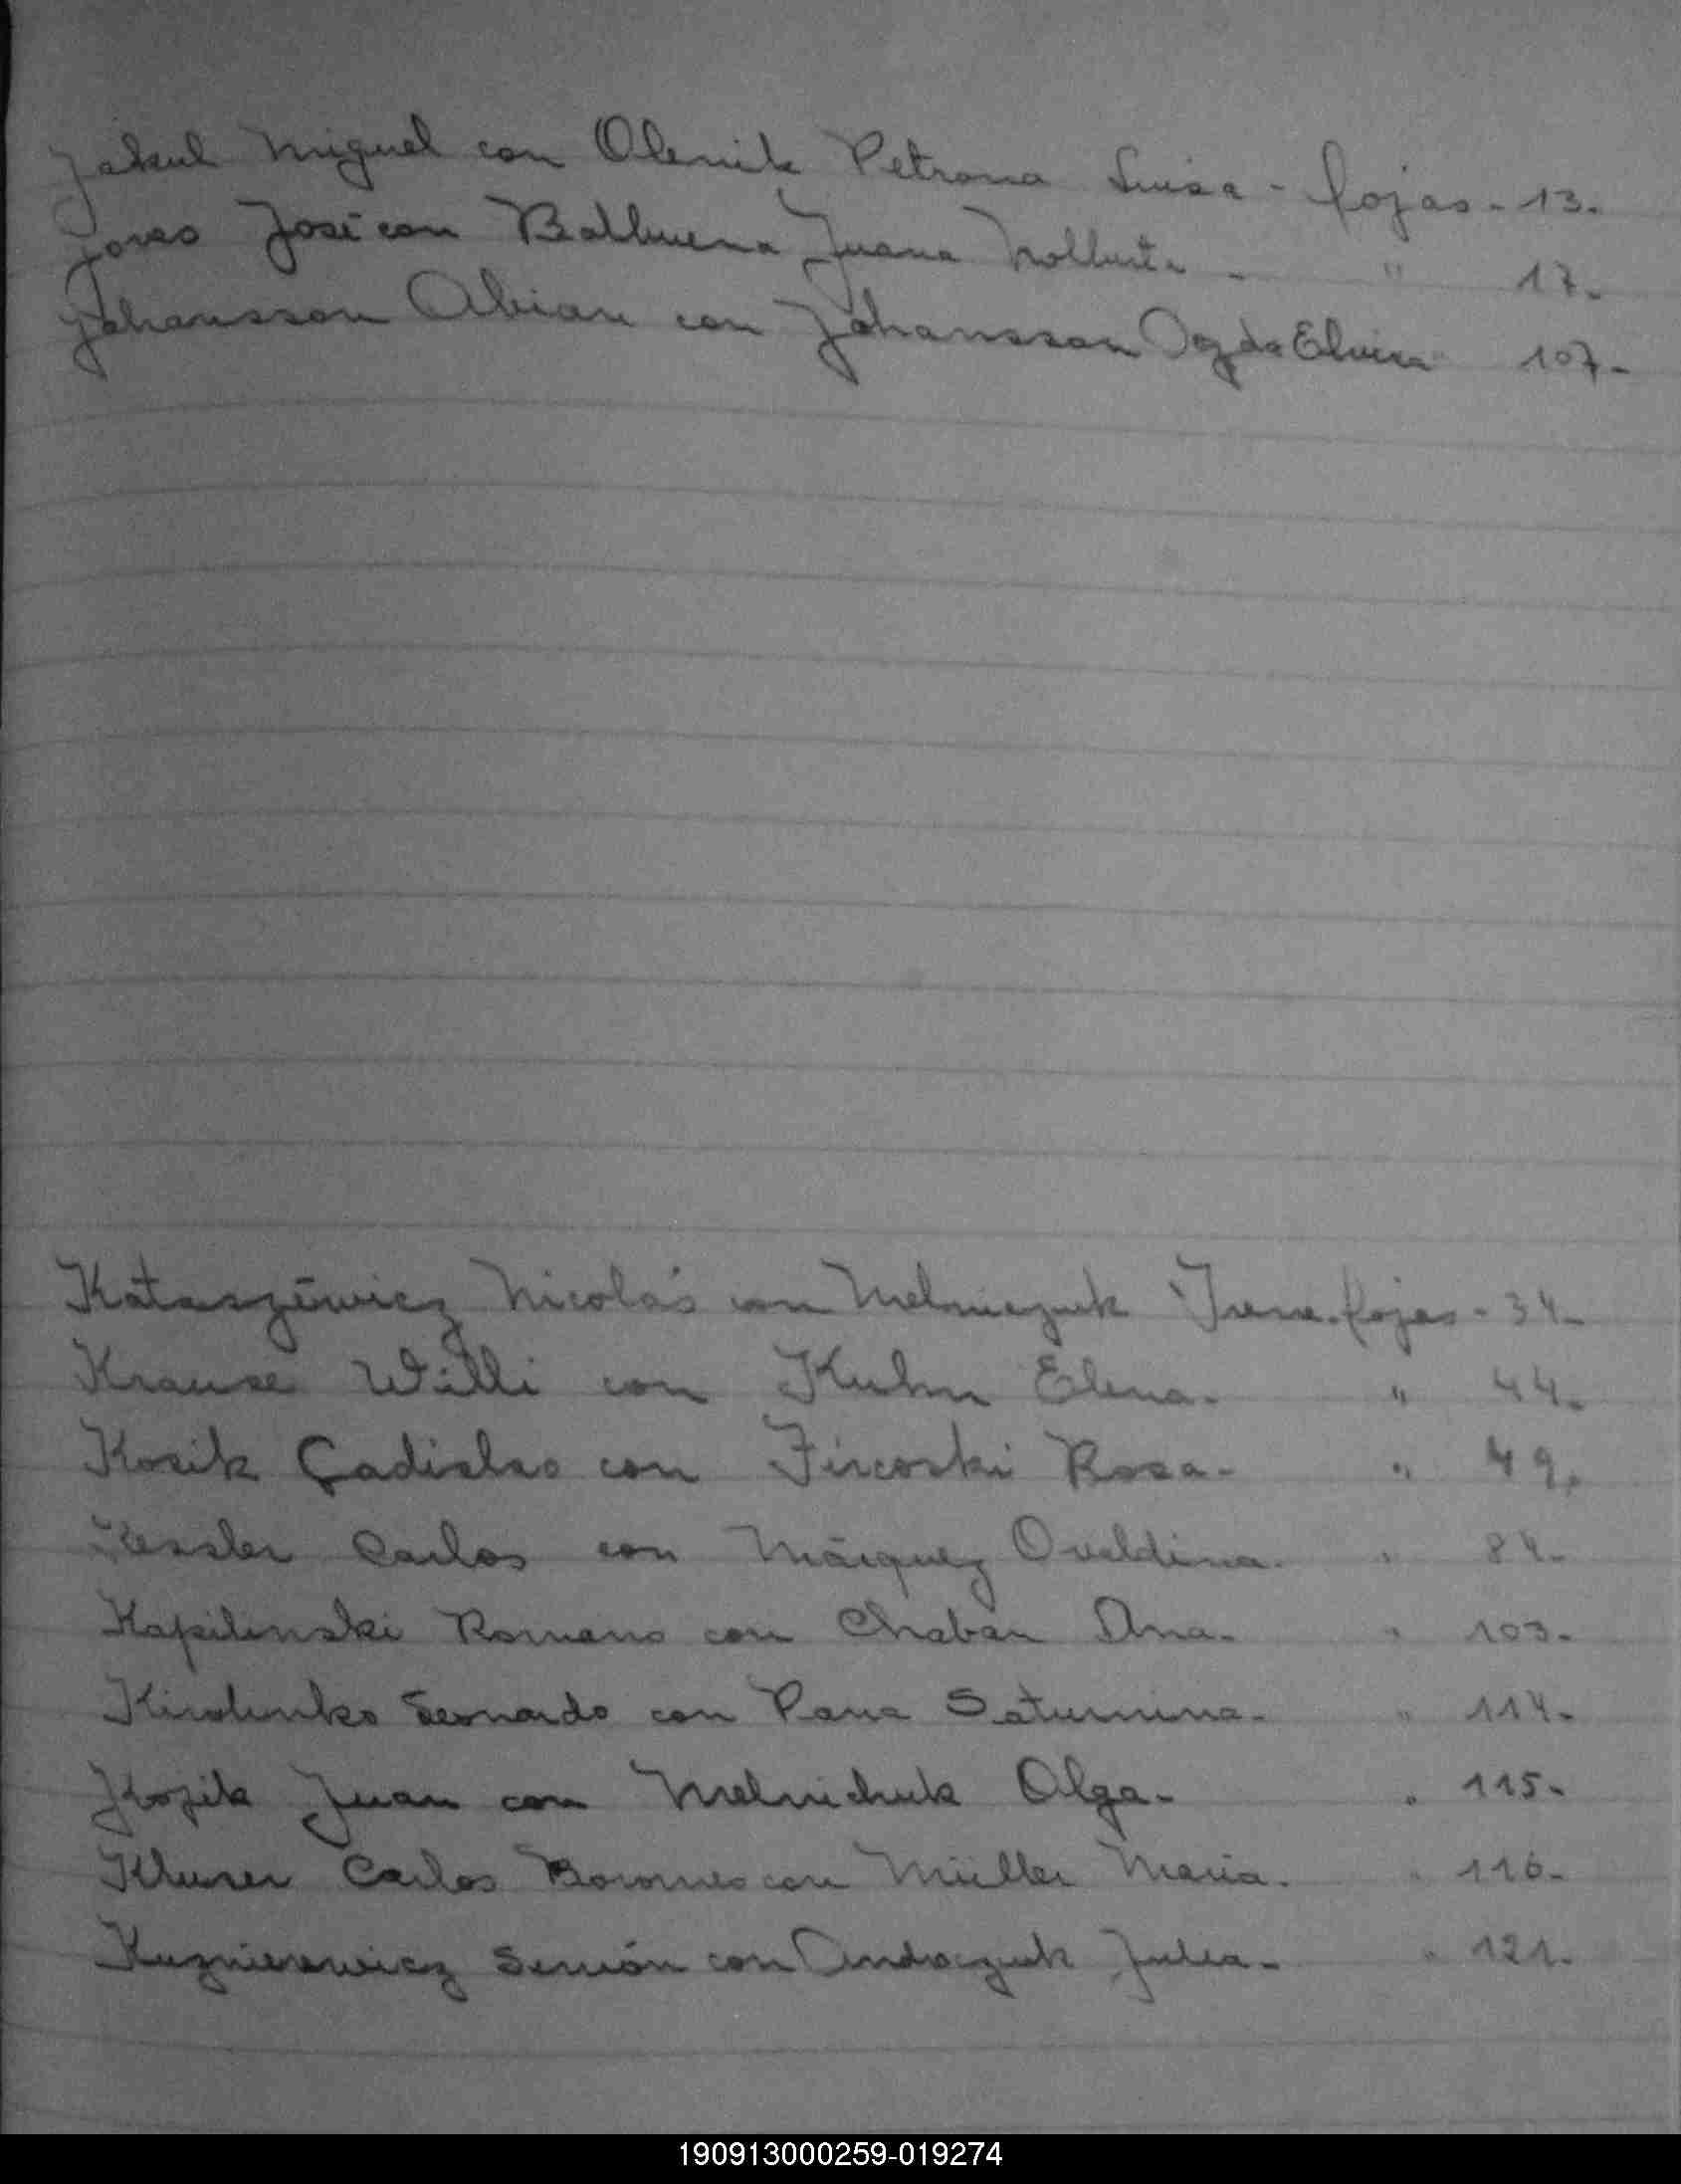 Jakul Miguel con Olenik Petrona Luisa - fojas - 13.
José con Balbuena Juana - " 17.
Johansson Abian con Johansson Ogda Elvira " 107-
Kataszewicz Nicolás con Melniczuk Irene. fojas - 34-
Krause Willi con Kuhn Elena. " 44.
Kosik Ladislao con Fircoski Rosa- " 49.
Kessler Carlos con Márquez Oveldina. " 84-
Kapilinski Romano con Chaban Ana- " 103-
Kirolenko Leonardo con Pana Saturnina- " 114-
Kozik Juan con Melnichuk Olga- " 115-
Carlos Borromeo con Müller María. " 116-
Kuznierewicz Simón con Andraczuk Julia- " 121-
190913000259-019274